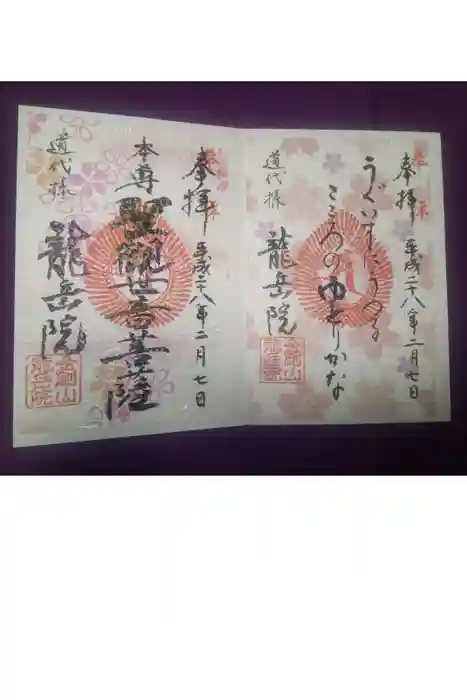 奉拝
平成二十八年二月七日
うぐいすにうめる
こころのゆとりかな
道代様
龍岳院
奉拝
平成二十八年二月七日
本尊
聖観世音菩薩
道代様
龍岳院